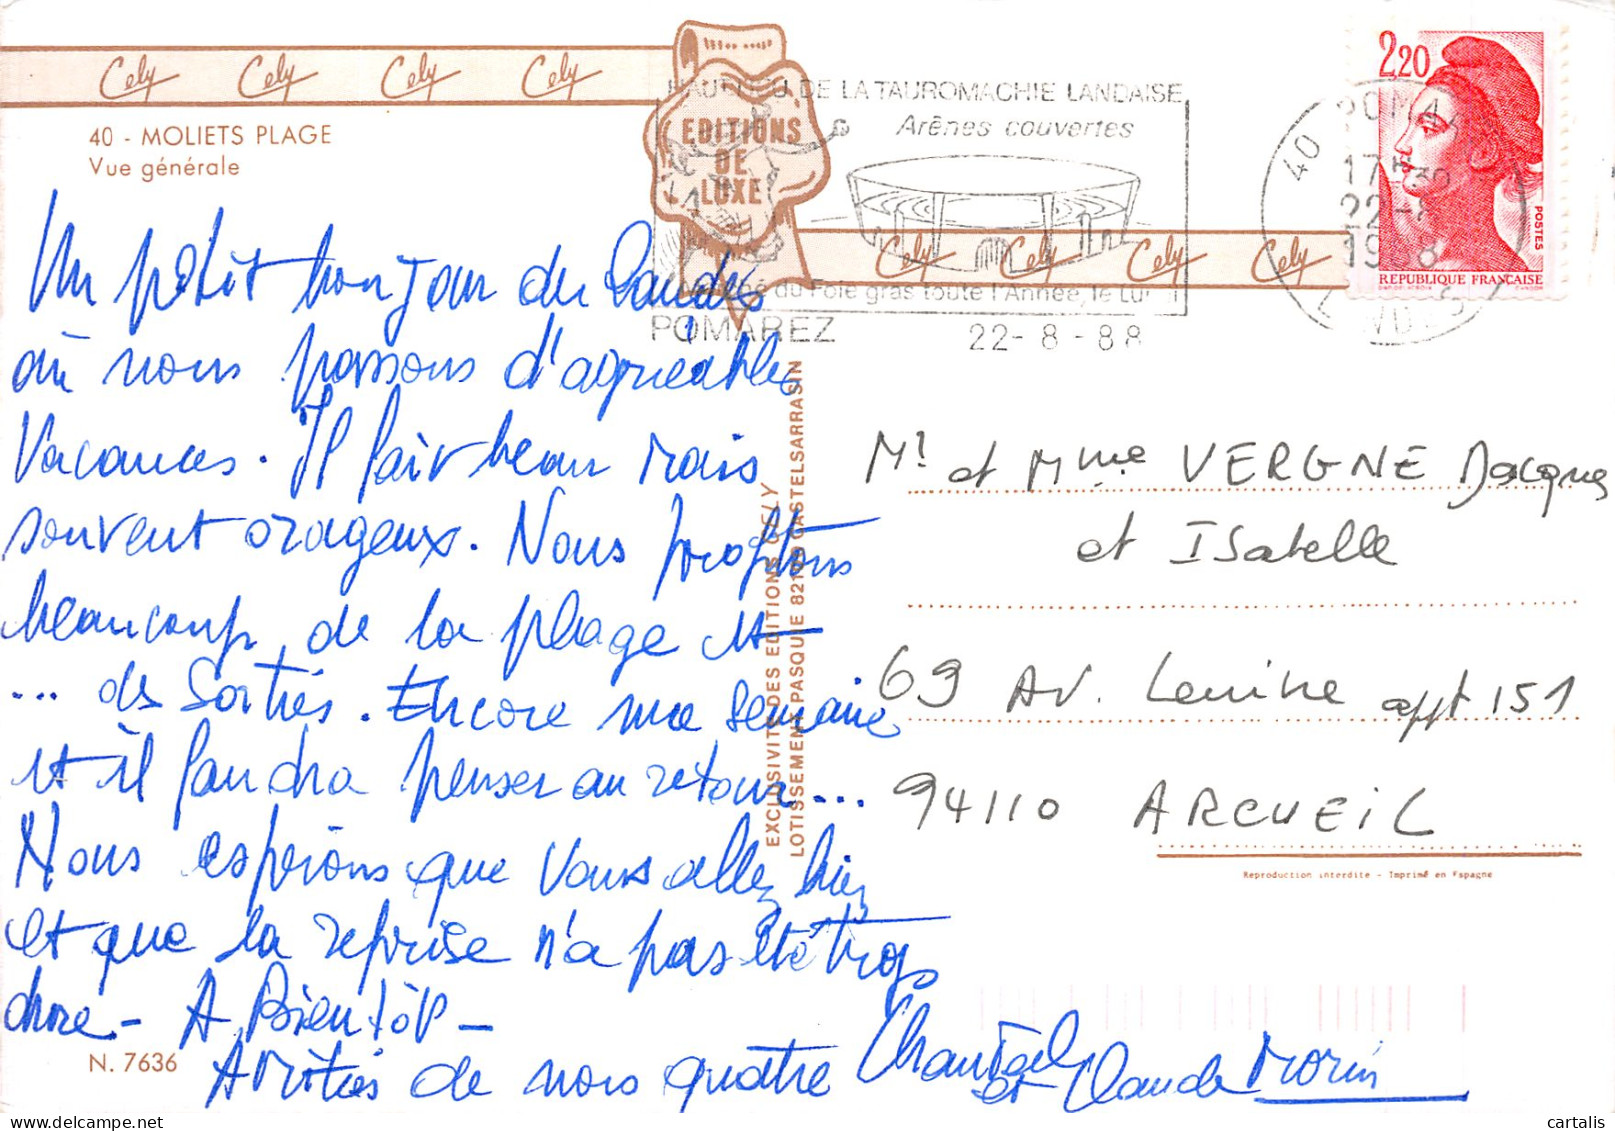 Cely Cely Cely Cely
40 - MOLIETS PLAGE
Vue générale
EDITIONS
DE
LUXE
HAUT LIEU DE LA TAUROMACHIE LANDAISE
Arênes couvertes
du Foie gras toute l'Année, le Lundi
POMAREZ 22-8-88
Cely Cely Cely Cely
2,20
POSTES
REPUBLIQUE FRANÇAISE
40 POMAREZ
17H30
22-8
1988
LANDES
Un petit bonjour des Landes
où nous passons d'agréables
Vacances. Il fait beau mais
souvent orageux. Nous profitons
beaucoup de la plage et
... des Sorties. Encore une semaine
et il faudra penser au retour...
Nous espérons que vous allez bien
et que la reprise n'a pas été trop
dure - A Bientôt -
Amitiés de nous quatre
Chantal
et Claude Morin
N. 7636
EXCLUSIVITE DES EDITIONS CELY
LOTISSEMENT PASQUIE 82100 CASTELSARRASIN
Mr et Mme VERGNE Jacques
et Isabelle
69 Av. Lenine appt 151
94110 ARCUEIL
Reproduction interdite - Imprimé en Espagne
cartalis